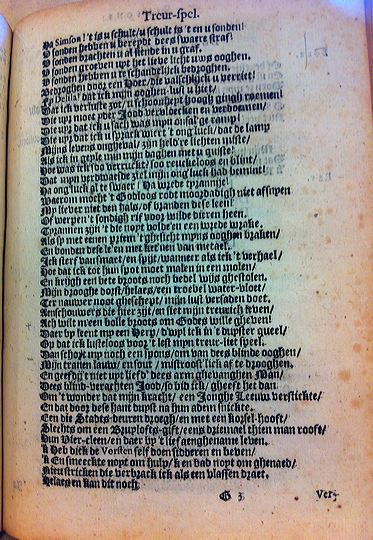 Treur-spel.
Ha Simson! 't is u schult/ u schult is 't en u sonden!
U sonden hebben u bereydt dees sware straf!
U sonden brachten u al siende in u graf.
U sonden groeven uyt het lieve licht uws ooghen.
U sonden hebben u so schandelijck bedroghen.
Bedroghen door een Hoer/ die valschlijck u verriet!
Ey Delila! dat ick mijn ooghen-lust u hiet/
Dat ick verliefde zot/ u schoonheyt hoogh gingh roemen!
Die my moet yder Jood vervloecken en verdoemen/
Die uyt dat ick u sach was mijn onsal'ge ramp!
Die uyt dat ick u sprack wiert 't ong'luck/ dat de lamp
Mijns levens ongheval/ zijn held're lichten miste/
Als ick in geyle min mijn daghen met u quiste!
Hoe was ick soo verruckt/ soo reuckeloos en blint/
Dat mijn verdwaesde ziel mijn ong'luck had bemint!
Ha ong'luck al te swaer! Ha wrede tyrannije!
Waerom mocht 't Godloos rodt moordadigh niet afsnyen
My liever niet den hals/ of handen dese leen!
Of werpen 't sondigh rif voor wilde dieren heen.
Tyrannen zijn 't die noyt volde en een wrede wrake.
Als sy met eenen priem 't ghesicht myns ooghen braken/
En bonden dese le'en met keten van metael.
Ick sterf van smart/ en spijt/ wanneer als ick 't verhael/
Hoe dat ick tot hun spot moet malen in een molen/
En krijgh een bete broots noch bedel wijs ghestolen.
Mijn drooghe dorst/ helaes/ een troebel water-vloet/
Ter nauwer noot gheschept/ mijn lust versaden doet.
Aenschouwers die hier zijt/ en siet mijn treurich leven/
Ach wilt my een volle broots om Godes wille gheven!
Daer by leent my een Herp/ d'wyl ick in 't duyster queel/
Op dat ick lusteloos voor 't lest myn treur-liet speel.
Dan schept my noch een spons/ om van dees blinde ooghen/
Mijn tranen lauw/ en sour/ mistroost'lick af te drooghen.
En geefdy 't niet uyt liefd' dees arm ghevanghen Man/
Dees blind-verachten Jood/ so bid ick/ gheeft het dan
Om 't wonder dat mijn kracht/ een Jonghe Leeuw verstickte/
En dat door dese hant dupst na hun adem snickte.
Een die Stadts-deuren droegh/ en met een Rosel-hooft/
Slechts om een Bruylofts-gift/ eens driemael thien man rooft/
Hun Vier-cleen/ en daer by 't lief aenghename leven.
'k Heb dick de Vorsten self doen sidderen en beven/
'k En smeeckte noyt om hulp/ k en bad noyt om ghenaed/
Nieu stricken die verbrack ick als een vlassen draet.
Helaes en kan dit noch
G 3. Ver-